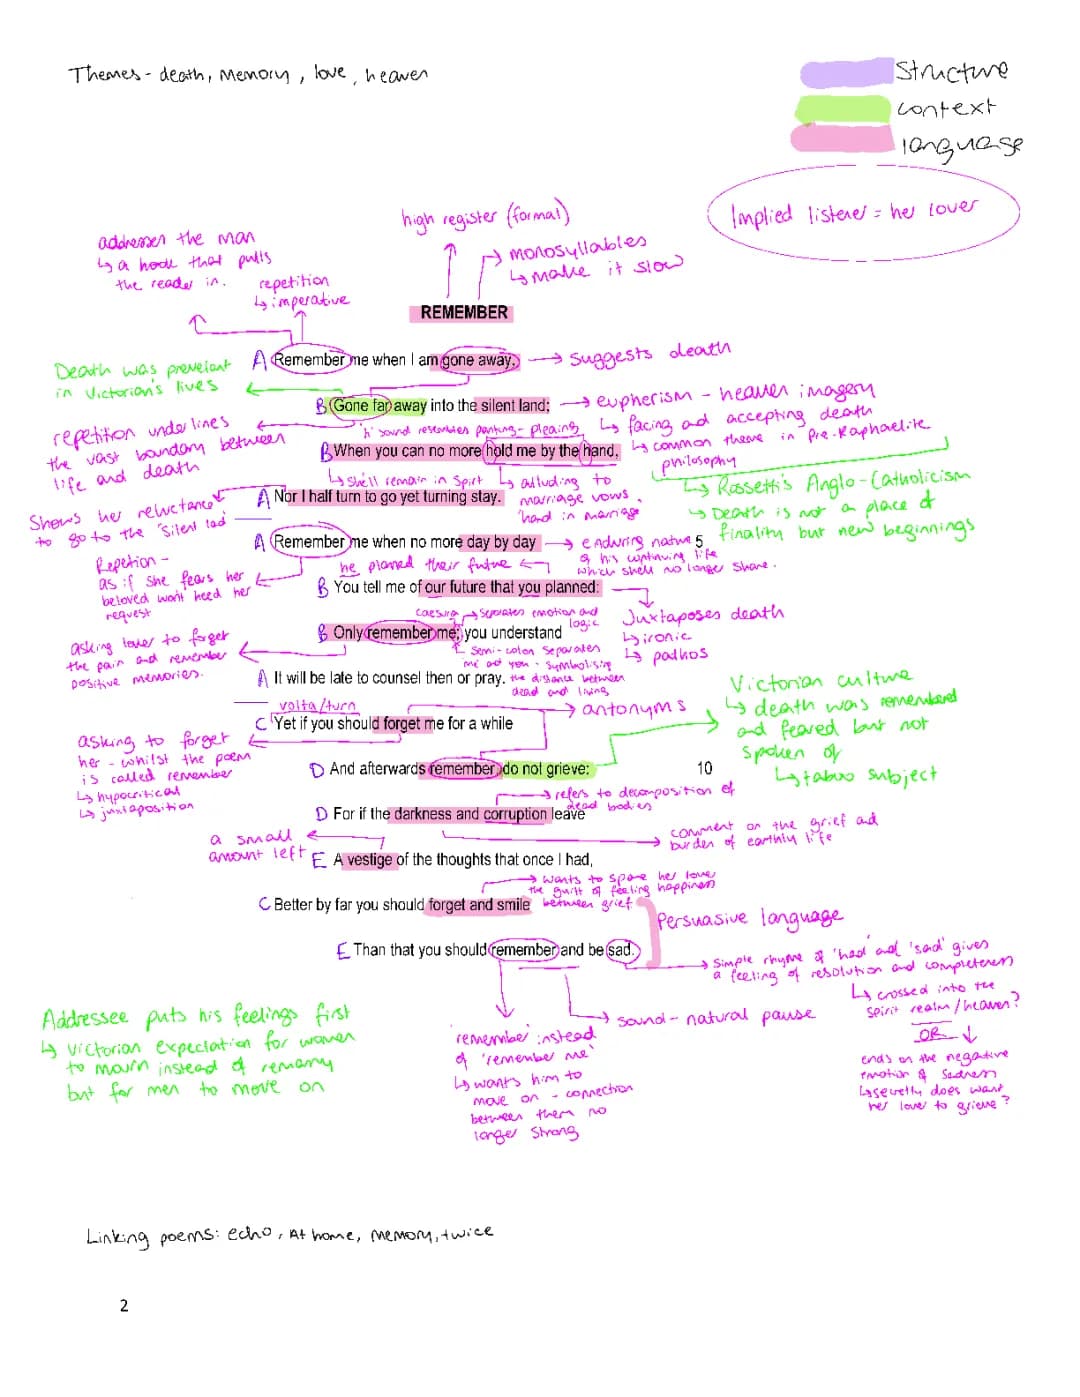 Themes - death, Memory, love, heaven
Structure
context
language
Implied listener = her lover
high register (formal)
monosyllables
↳ make it slow
addresses the man
↳ a hook that pulls
the reader in.
repetition
↳ imperative
REMEMBER
A Remember me when I am gone away, → suggests death
Death was prevelant
in Victorian's lives
B Gone far away into the silent land; → eupherism - heaven imagery
↳ facing and accepting death
↳ common theme in Pre-Raphaelite
philosophy
repetition underlines
the vast boundary between
life and death
'h' sound resembles panting - pleading
B When you can no more hold me by the hand,
↳ Shell remain in Spirt
↳ alluding to
marriage vows,
'hand in marriage
↳ Rossetti's Anglo-Catholicism
↳ Death is not a place of
finality but new beginnings
A Nor I half turn to go yet turning stay.
Shows her reluctance
to go to the 'Silent lad'
A Remember me when no more day by day → enduring nature 5
of his continuing life
which shell no longer share.
he planned their future
Repetion -
as if she fears her
beloved wont heed her
request
B You tell me of our future that you planned:
Juxtaposes death
↳ ironic
↳ pathos
caesura → Seperates emotion and
logic
B Only remember me; you understand
Semi-colon separates
me and you - symbolising
the distance between
dead and living
asking lover to forget
the pain and remember
positive memories.
A It will be late to counsel then or pray.
volta/turn
→ antonyms
C Yet if you should forget me for a while
Victorian culture
↳ death was remembered
and feared but not
spoken of
↳ taboo subject
asking to forget
her - whilst the poem
is called remember
↳ hypocritical
↳ juxtaposition
D And afterwards remember, do not grieve: 10
→ refers to decomposition of
dead bodies
D For if the darkness and corruption leave
comment on the grief and
burden of earthly life
a small
amount left
E A vestige of the thoughts that once I had,
→ wants to spare her lover
the guilt of feeling happiness
between grief
C Better by far you should forget and smile
Persuasive language
E Than that you should remember and be sad.
→ Simple rhyme of 'had' and 'sad' gives
a feeling of resolution and completeness
↳ crossed into the
spirit realm/heaven?
OR ↓
ends on the negative
emotion of Sadness
↳ secretly does want
her lover to grieve?
→ sound - natural pause
'remember' instead
of 'remember me'
↳ wants him to
move on - connection
between them no
longer strong
Addressee puts his feelings first
↳ Victorian expectation for women
to mourn instead of remarry
but for men to move on
Linking poems: echo, At home, memory, twice
2